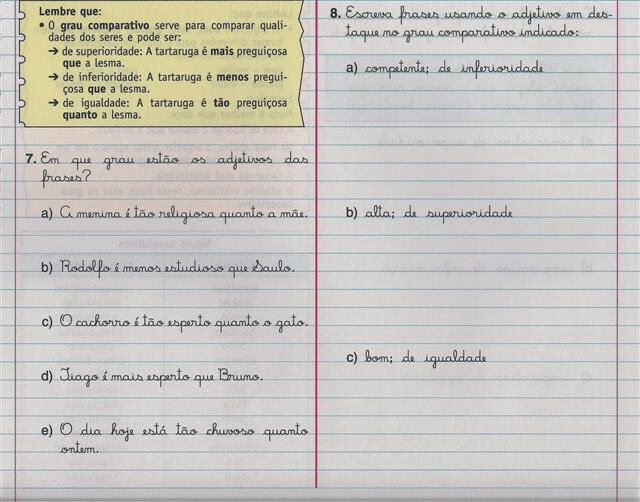 Lembre que:
• O grau comparativo serve para comparar quali-
dades dos seres e pode ser:
➔ de superioridade: A tartaruga é mais preguiçosa
que a lesma.
➔ de inferioridade: A tartaruga é menos pregui-
çosa que a lesma.
➔ de igualdade: A tartaruga é tão preguiçosa
quanto a lesma.
7. Em que grau estão os adjetivos das
frases?
a) A menina é tão religiosa quanto a mãe.
b) Rodolfo é menos estudioso que Saulo.
c) O cachorro é tão esperto quanto o gato.
d) Tiago é mais esperto que Bruno.
e) O dia hoje está tão chuvoso quanto
ontem.
8. Escreva frases usando o adjetivo em des-
taque no grau comparativo indicado:
a) competente; de inferioridade
b) alta; de superioridade
c) bom; de igualdade